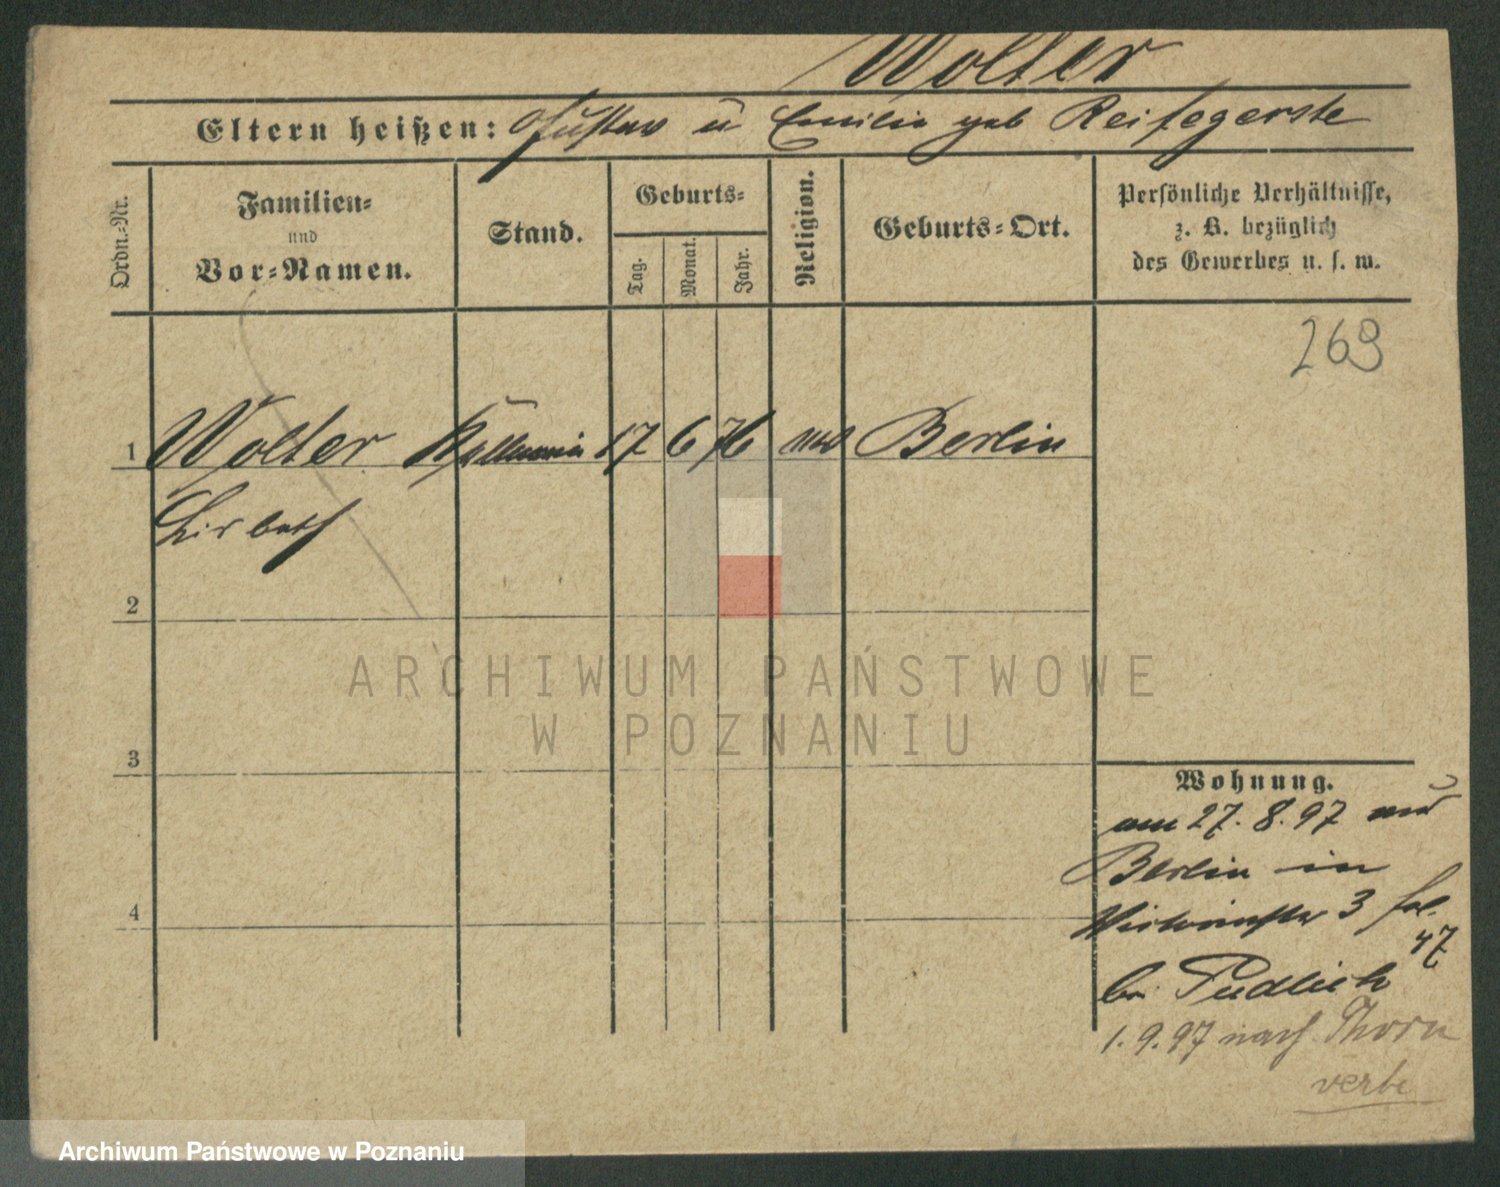 Wolter
Eltern heißen: Gustav u Emilie geb Reifegerste
Ordn.-Nr.
Familien-
und
Vor-Namen.
Stand.
Geburts-
Tag.
Monat.
Jahr.
Religion.
Geburts-Ort.
Persönliche Verhältnisse,
z. B. bezüglich
des Gewerbes u. s. w.
269
1 Wolter Kellnerin 17 6 76 Berlin
Lisbeth
2
3
4
Wohnung.
am 27. 8. 97 aus
Berlin in
3
47
bei Pudlich
1. 9. 97 nach Thorn
ARCHIWUM PAŃSTWOWE
W POZNANIU
Archiwum Państwowe w Poznaniu